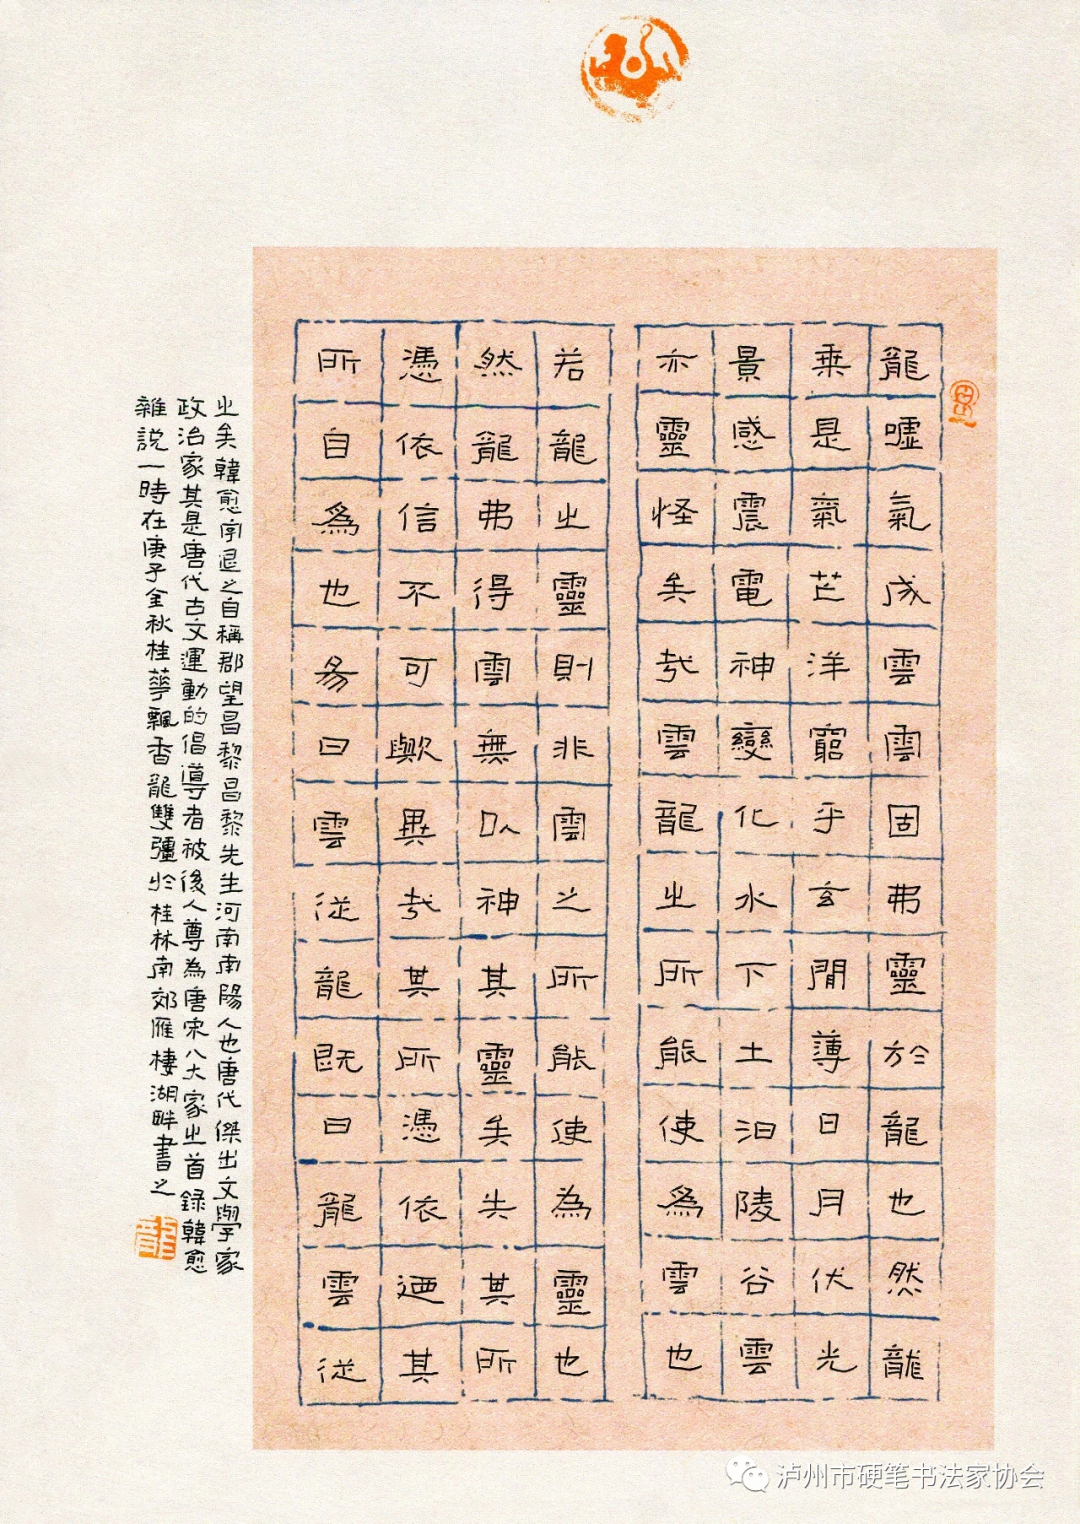 龍噓氣成雲雲固弗靈於龍也然龍
乘是氣茫洋窮乎玄閒薄日月伏光
景感震電神變化水下土汩陵谷雲
亦靈怪矣哉雲龍之所能使爲雲也
若龍之靈則非雲之所能使為靈也
然龍弗得雲無以神其靈矣失其所
憑依信不可歟異哉其所憑依迺其
所自爲也易曰雲從龍既曰龍雲從
之矣韓愈字退之自稱郡望昌黎昌黎先生河南南陽人也唐代傑出文學家
政治家其是唐代古文運動的倡導者被後人尊為唐宋八大家之首錄韓愈
雜説一時在庚子金秋桂華飄香龍雙彊於桂林南郊雁棲湖畔書之
龍
泸州市硬笔书法家协会